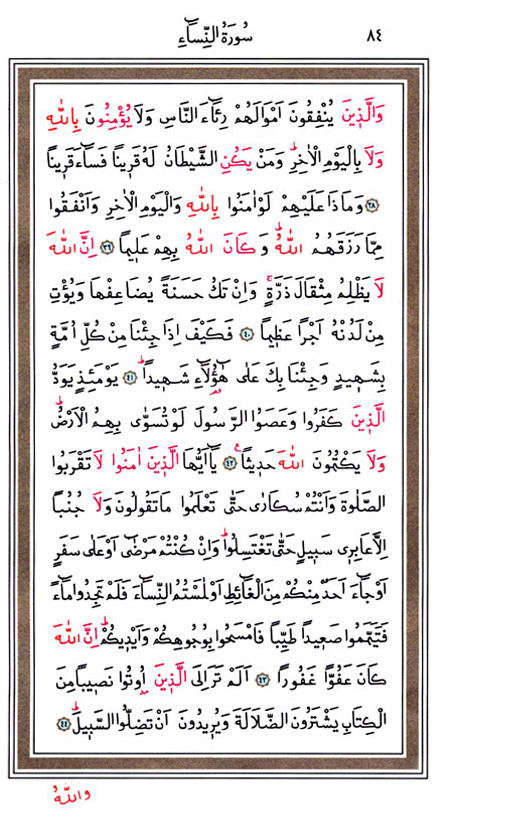 سُورَةُ النِّسَٓاءِ ٨٤
وَالَّذ۪ينَ يُنْفِقُونَ اَمْوَالَهُمْ رِئَٓاءَ النَّاسِ وَلَا يُؤْمِنُونَ بِاللّٰهِ
وَلَا بِالْيَوْمِ الْاٰخِرِۜ وَمَنْ يَكُنِ الشَّيْطَانُ لَهُ قَر۪ينًا فَسَٓاءَ قَر۪ينًا
﴿٣٨﴾ وَمَاذَا عَلَيْهِمْ لَوْ اٰمَنُوا بِاللّٰهِ وَالْيَوْمِ الْاٰخِرِ وَاَنْفَقُوا
مِمَّا رَزَقَهُمُ اللّٰهُۜ وَكَانَ اللّٰهُ بِهِمْ عَل۪يمًا ﴿٣٩﴾ اِنَّ اللّٰهَ
لَا يَظْلِمُ مِثْقَالَ ذَرَّةٍۚ وَاِنْ تَكُ حَسَنَةً يُضَاعِفْهَا وَيُؤْتِ
مِنْ لَدُنْهُ اَجْرًا عَظ۪يمًا ﴿٤٠﴾ فَكَيْفَ اِذَا جِئْنَا مِنْ كُلِّ اُمَّةٍ
بِشَه۪يدٍ وَجِئْنَا بِكَ عَلٰى هٰٓؤُ۬لَٓاءِ شَه۪يدًاۜ ﴿٤١﴾ يَوْمَئِذٍ يَوَدُّ
الَّذ۪ينَ كَفَرُوا وَعَصَوُا الرَّسُولَ لَوْ تُسَوّٰى بِهِمُ الْاَرْضُۜ
وَلَا يَكْتُمُونَ اللّٰهَ حَد۪يثًا۟ ﴿٤٢﴾ يَٓا اَيُّهَا الَّذ۪ينَ اٰمَنُوا لَا تَقْرَبُوا
الصَّلٰوةَ وَاَنْتُمْ سُكَارٰى حَتّٰى تَعْلَمُوا مَا تَقُولُونَ وَلَا جُنُبًا
اِلَّا عَابِر۪ي سَب۪يلٍ حَتّٰى تَغْتَسِلُواۜ وَاِنْ كُنْتُمْ مَرْضٰٓى اَوْ عَلٰى سَفَرٍ
اَوْ جَٓاءَ اَحَدٌ مِنْكُمْ مِنَ الْغَٓائِطِ اَوْ لٰمَسْتُمُ النِّسَٓاءَ فَلَمْ تَجِدُوا مَٓاءً
فَتَيَمَّمُوا صَع۪يدًا طَيِّبًا فَامْسَحُوا بِوُجُوهِكُمْ وَاَيْد۪يكُمْۜ اِنَّ اللّٰهَ
كَانَ عَفُوًّا غَفُورًا ﴿٤٣﴾ اَلَمْ تَرَ اِلَى الَّذ۪ينَ اُو۫تُوا نَص۪يبًا مِنَ
الْكِتَابِ يَشْتَرُونَ الضَّلَالَةَ وَيُر۪يدُونَ اَنْ تَضِلُّوا السَّب۪يلَۜ ﴿٤٤﴾
وَاللّٰهُ